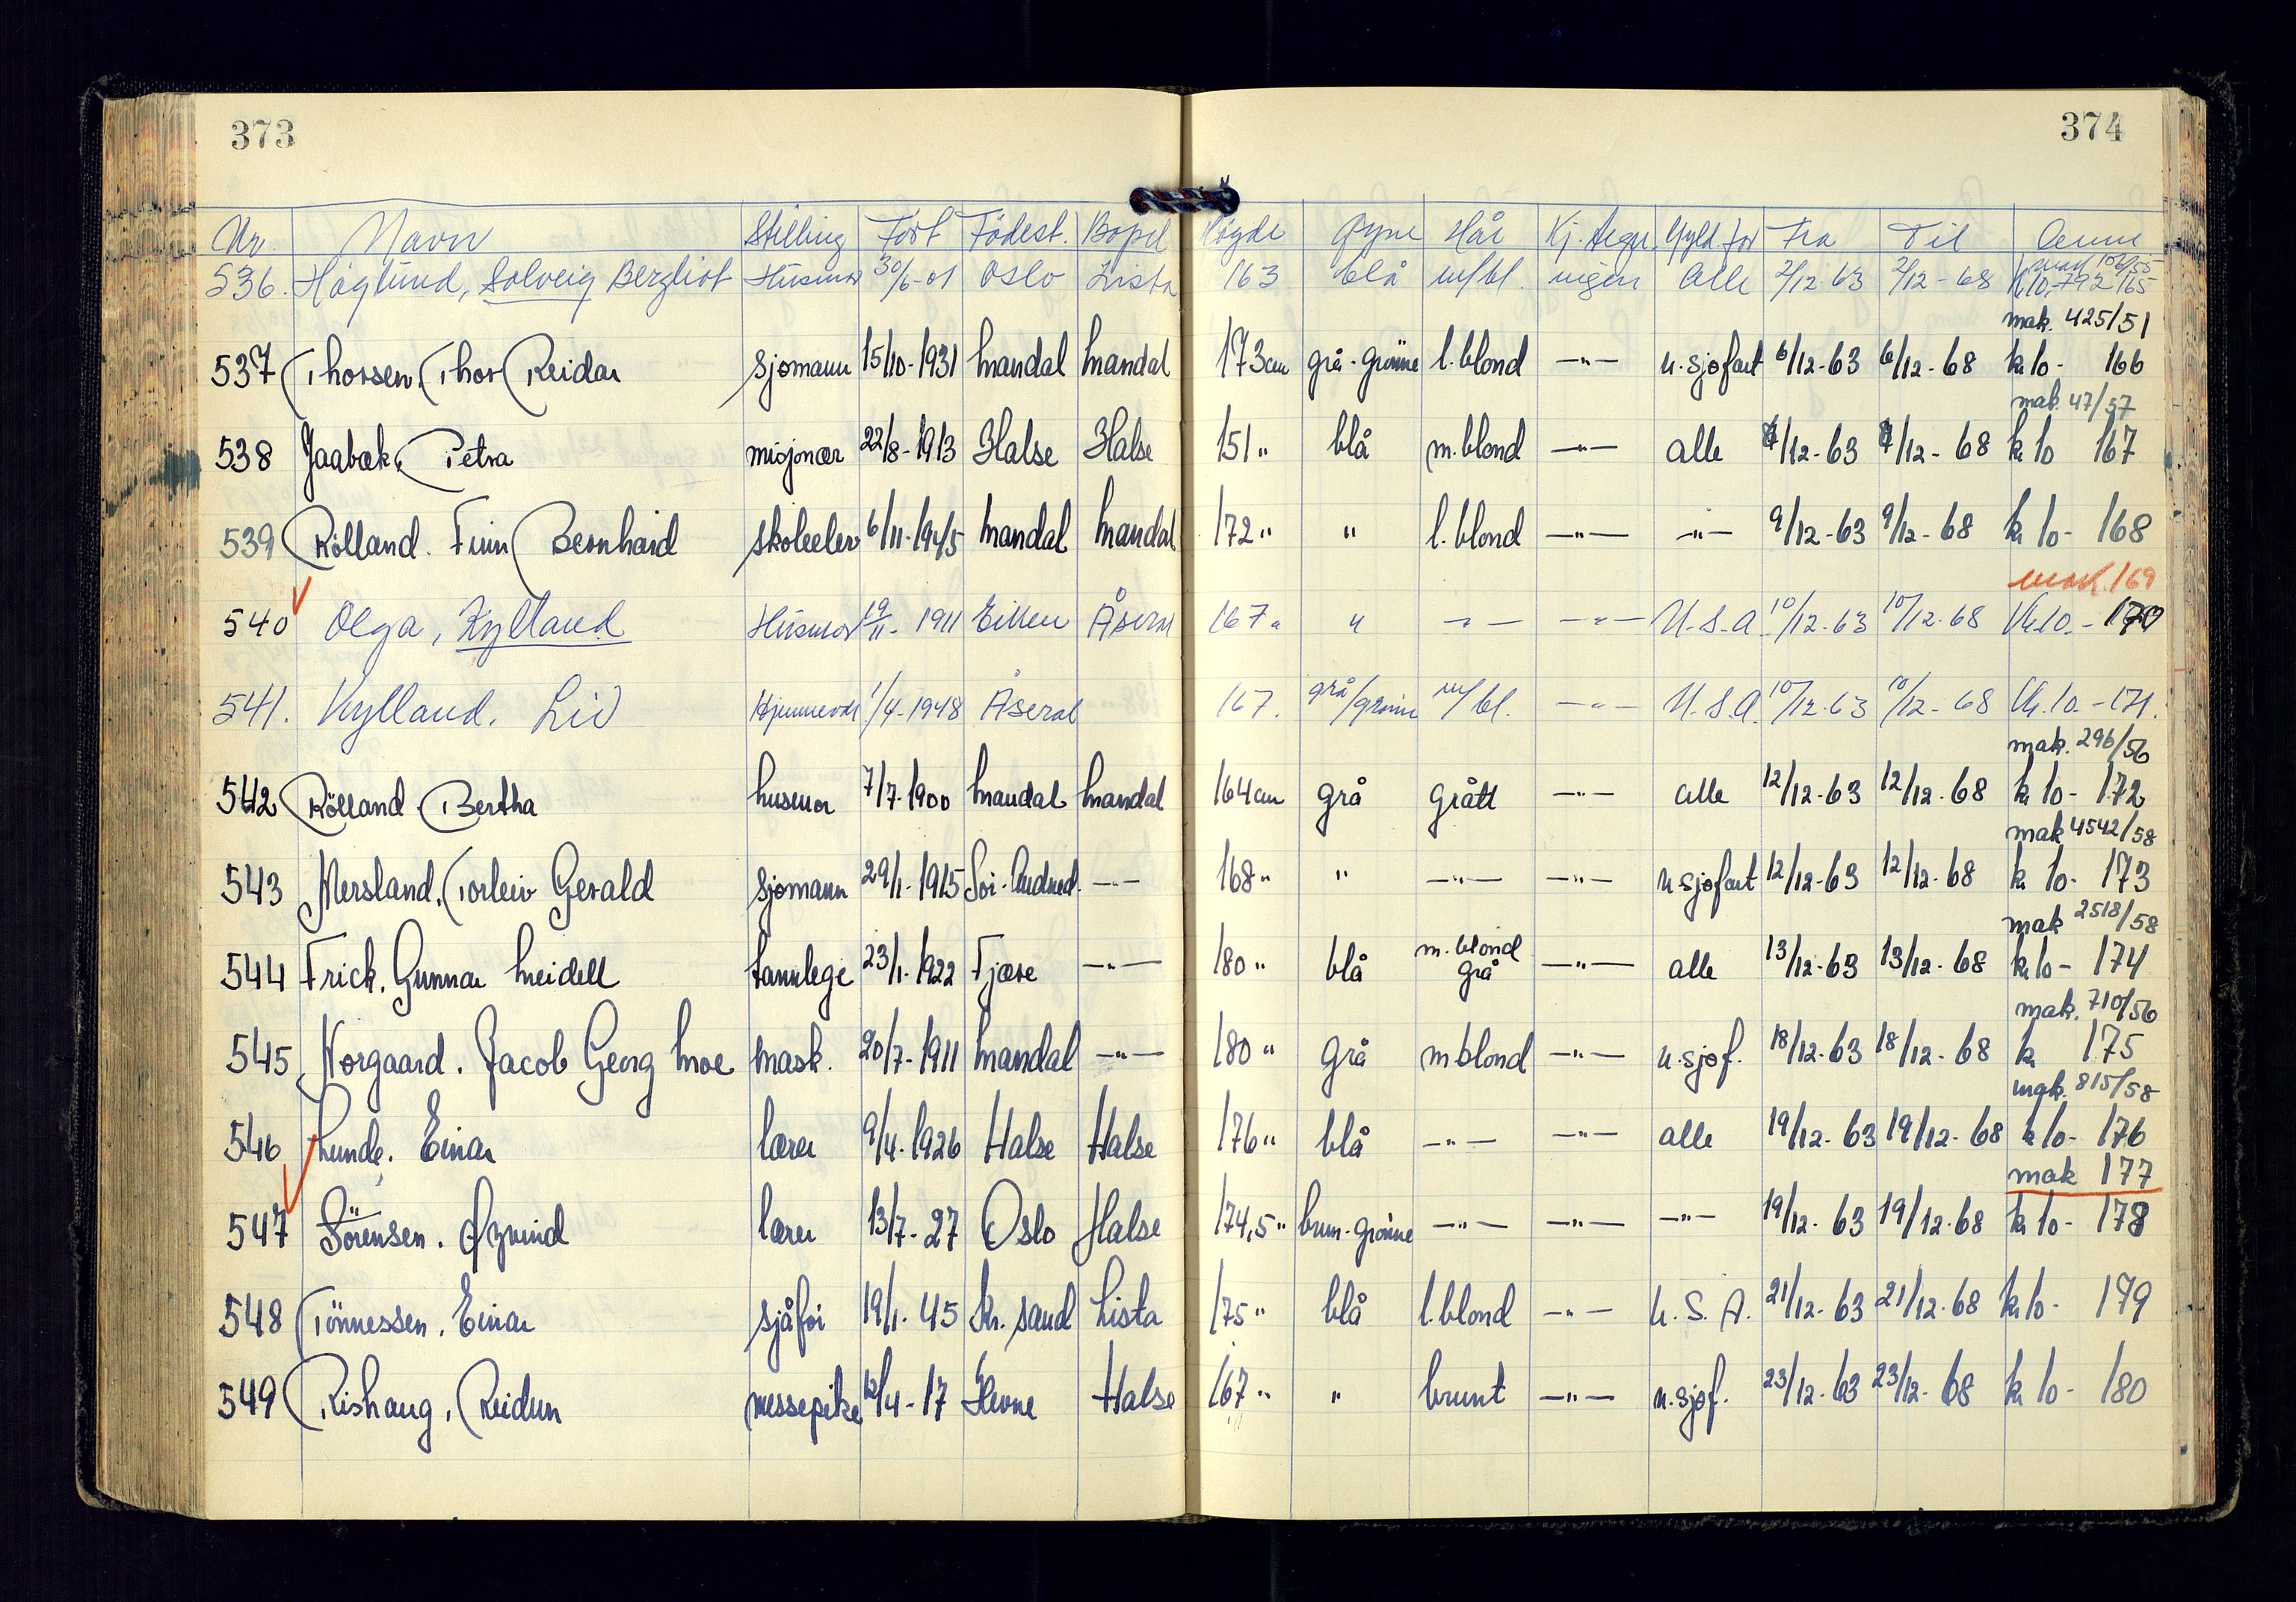 373
374
Nr. Navn Stilling Født Födest. Bopel Høyde Øyne Hår Kj.tegn Gyld. for Fra Til Anm
536. Höglund, Solveig Bergliot Husmor 30/6-01 Oslo Lista 163 blå m/bl. ingen Alle 2/12-63 2/12-68 kr 10,- 165
mak. 425/51
537 Thorsen. Thor Reidar sjømann 15/10-1931 Mandal Mandal 173 cm grå-grönne l. blond —"— u. sjøfart 6/12-63 6/12-68 kr 10- 166
mak. 47/57
538 Jaabæk, Petra misjonær 22/8-1913 Halse Halse 151 " blå m. blond —"— alle /12-63 /12-68 kr 10 167
539 Rölland. Finn Bernhard skoleelev 6/11-1945 Mandal Mandal 172 " " l. blond —"— —"— 9/12-63 9/12-68 kr 10- 168
mak. 169
540 Olga, Kylland Husmor 19/11-1911 Eiken Åseral 167 " " —"— —"— U.S.A. 10/12-63 10/12-68 kr.10.- 170
541. Kylland. Liv Hjemmevær. 1/4-1948 Åseral 167. grå/grønne m/bl. —"— U.S.A. 10/12-63 10/12-68 kr.10.- 171.
mak. 296/56
542 Rölland. Bertha husmor 7/7-1900 Mandal Mandal 164 cm grå grått —"— alle 12/12-63 12/12-68 kr 10- 172
mak 4542/58
543 Mersland. Torleiv Gerald sjømann 29/1-1915 Sør-Audned. —"— 168 " " —"— —"— u sjøfart 12/12-63 12/12-68 kr 10- 173
mak 2518/58
544 Frick. Gunnar Meidell tannlege 23/1-1922 Fjære —"— 180 " blå m. blond grå —"— alle 13/12-63 13/12-68 kr 10- 174
mak. 710/56
545 Norgaard. Jacob Georg Moe mask. 20/7-1911 Mandal —"— 180 " grå m blond —"— u. sjøf. 18/12-63 18/12-68 kr 175
mak. 815/58
546 Lunde. Einar lærer 9/4-1926 Halse Halse 176 " blå —"— —"— alle 19/12-63 19/12-68 kr 10- 176
mak 177
547 Sörensen. Øyvind lærer 13/7-27 Oslo Halse 174,5 " brun-grönne —"— —"— —"— 19/12-63 19/12-68 kr 10- 178
548 Tönnessen. Einar sjåfør 19/1-45 Kr. sand Lista 175 " blå l. blond —"— U. S. A. 21/12-63 21/12-68 kr 10- 179
549 Rishaug. Reidun messepike 12/4-17 Hevne Halse 167 " " brunt —"— u. sjøf. 23/12-63 23/12-68 kr 10- 180